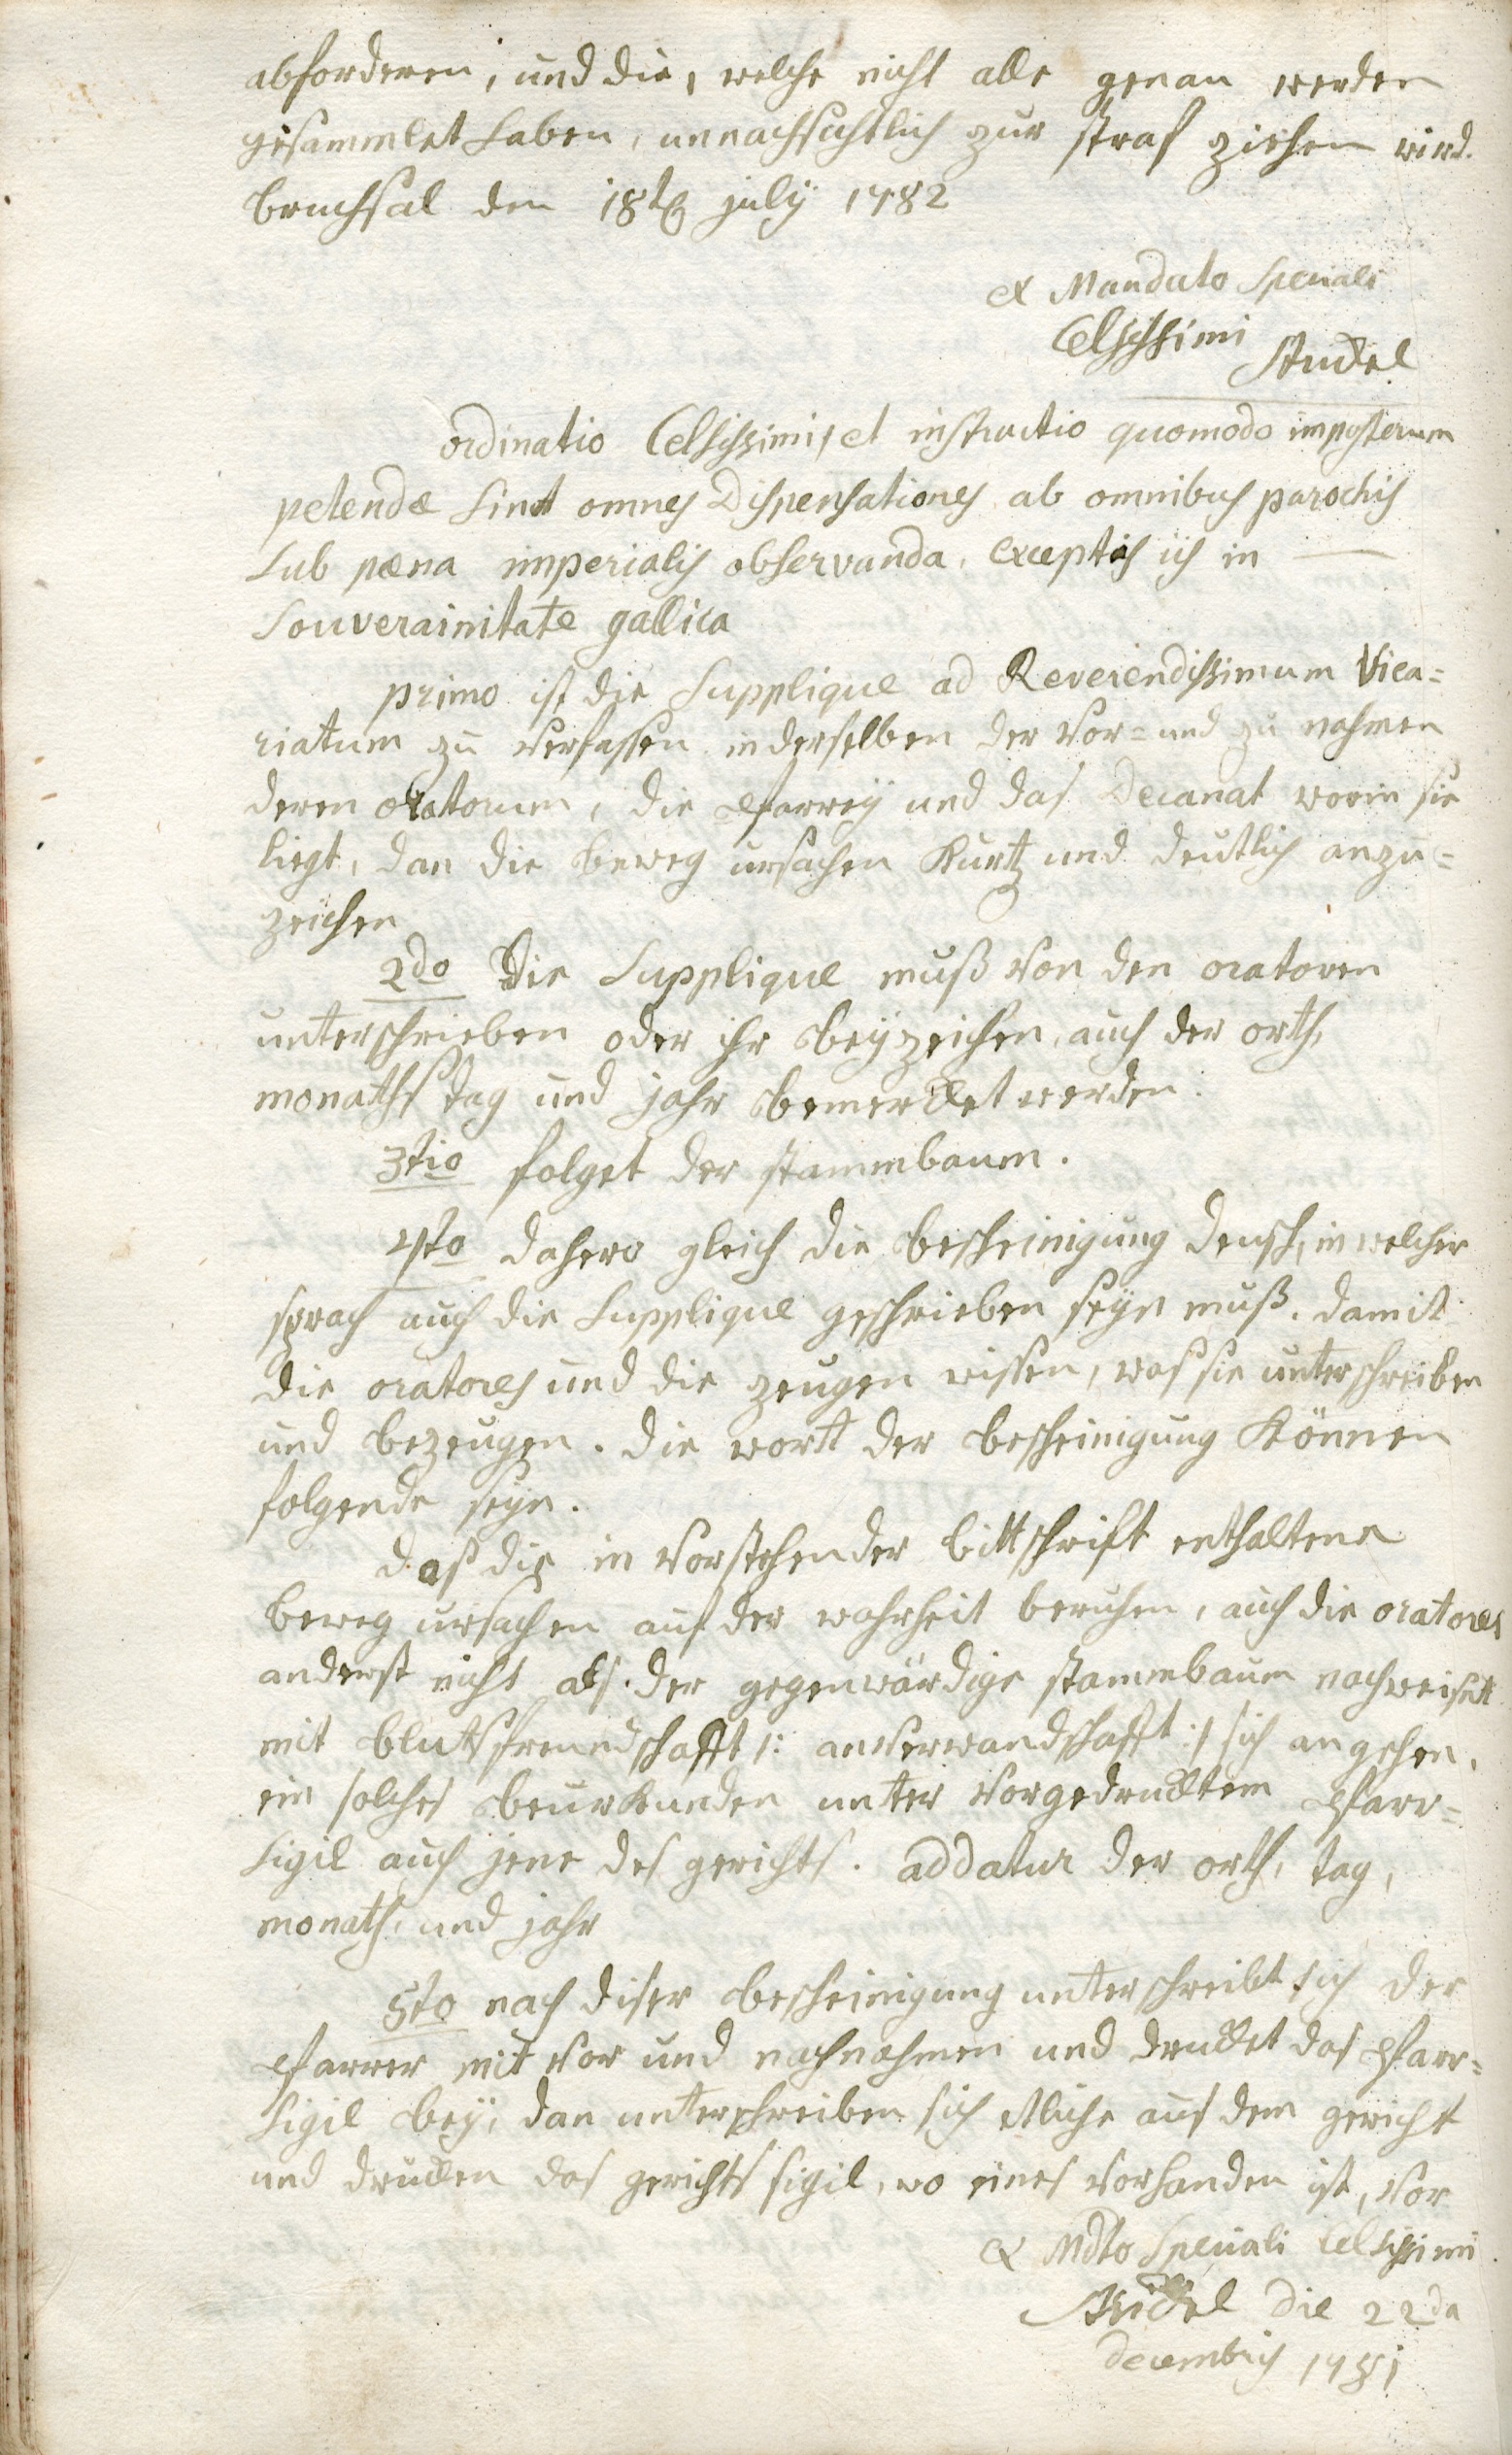 abforderen, und die, welche nicht alle genau werden
gesammlet haben, unnachsichtlich zur straf ziehen wird.
bruchsal den 18t july 1782
ex Mandato Speciali
Celsissimi Stuckel
ordinatio Celsissimi, et instructio quomodo imposterum
petendæ sint omnes Dispensationes ab omnibus parochis
sub pæna imperialis observanda, exceptis iis in
Souverainitate gallica
primo ist die Supplique ad Reverendissimum Vica=
riatum zu verfassen in derselben der vor= und zu nahmen
deren oratorum, die pfarrey und das Decanat worin sie
liegt, dan die beweg ursachen kurtz und deutlich anzu=
zeichen
2do Die Supplique muß von den oratoren
unterschrieben oder ihr beyzeichen, auch der orth,
monaths tag und jahr bemercket werden.
3tio folget der stammbaum.
4to dahero gleich die bescheinigung deutsch, in welcher
sprach auch die Supplique geschrieben seyn muß. damit
die oratores und die zeugen wissen, was sie unterschreiben
und bezeugen. die wort der bescheinigung können
folgende seyn.
daß die in vorstehender bittschrift enthaltene
beweg ursachen auf der wahrheit beruhen, auch die oratores
anderst nicht als der gegenwärdige stammbaum nachweiset
mit blutsfreundschafft /: anverwandschafft :/ sich angehen,
ein solches beurkunden unter vorgedrucktem pfarr=
sigil auch jene des gerichts. addatur der orth, tag,
monath, und jahr
5to nach diser bescheinigung unterschreibt sich der
pfarrer mit vor und nachnahmen und drucket das pfarr=
sigil bey, dan unterschreiben sich etliche aus dem gericht
und drucken das gerichts sigil, wo eines vorhanden ist, vor
ex Mdto Speciali Celsissimi
Stuckel die 22da
decembris 1781